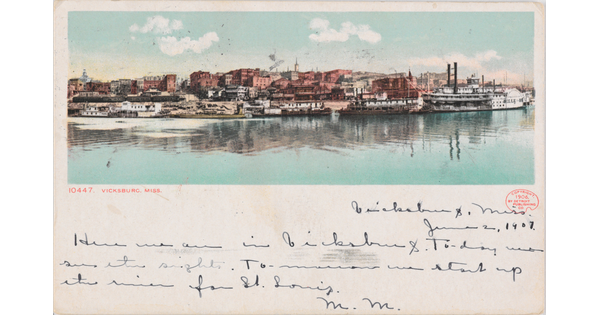 10447. VICKSBURG, MISS.
COPYRIGHT
BY DETROIT
PUBLISHING
CO.
Vicksburg, Miss.
June 2, 1907.
Here we are in Vicksburg. To-day we
see the sights. To-morrow we start up
the river for St. Louis.
M. M.